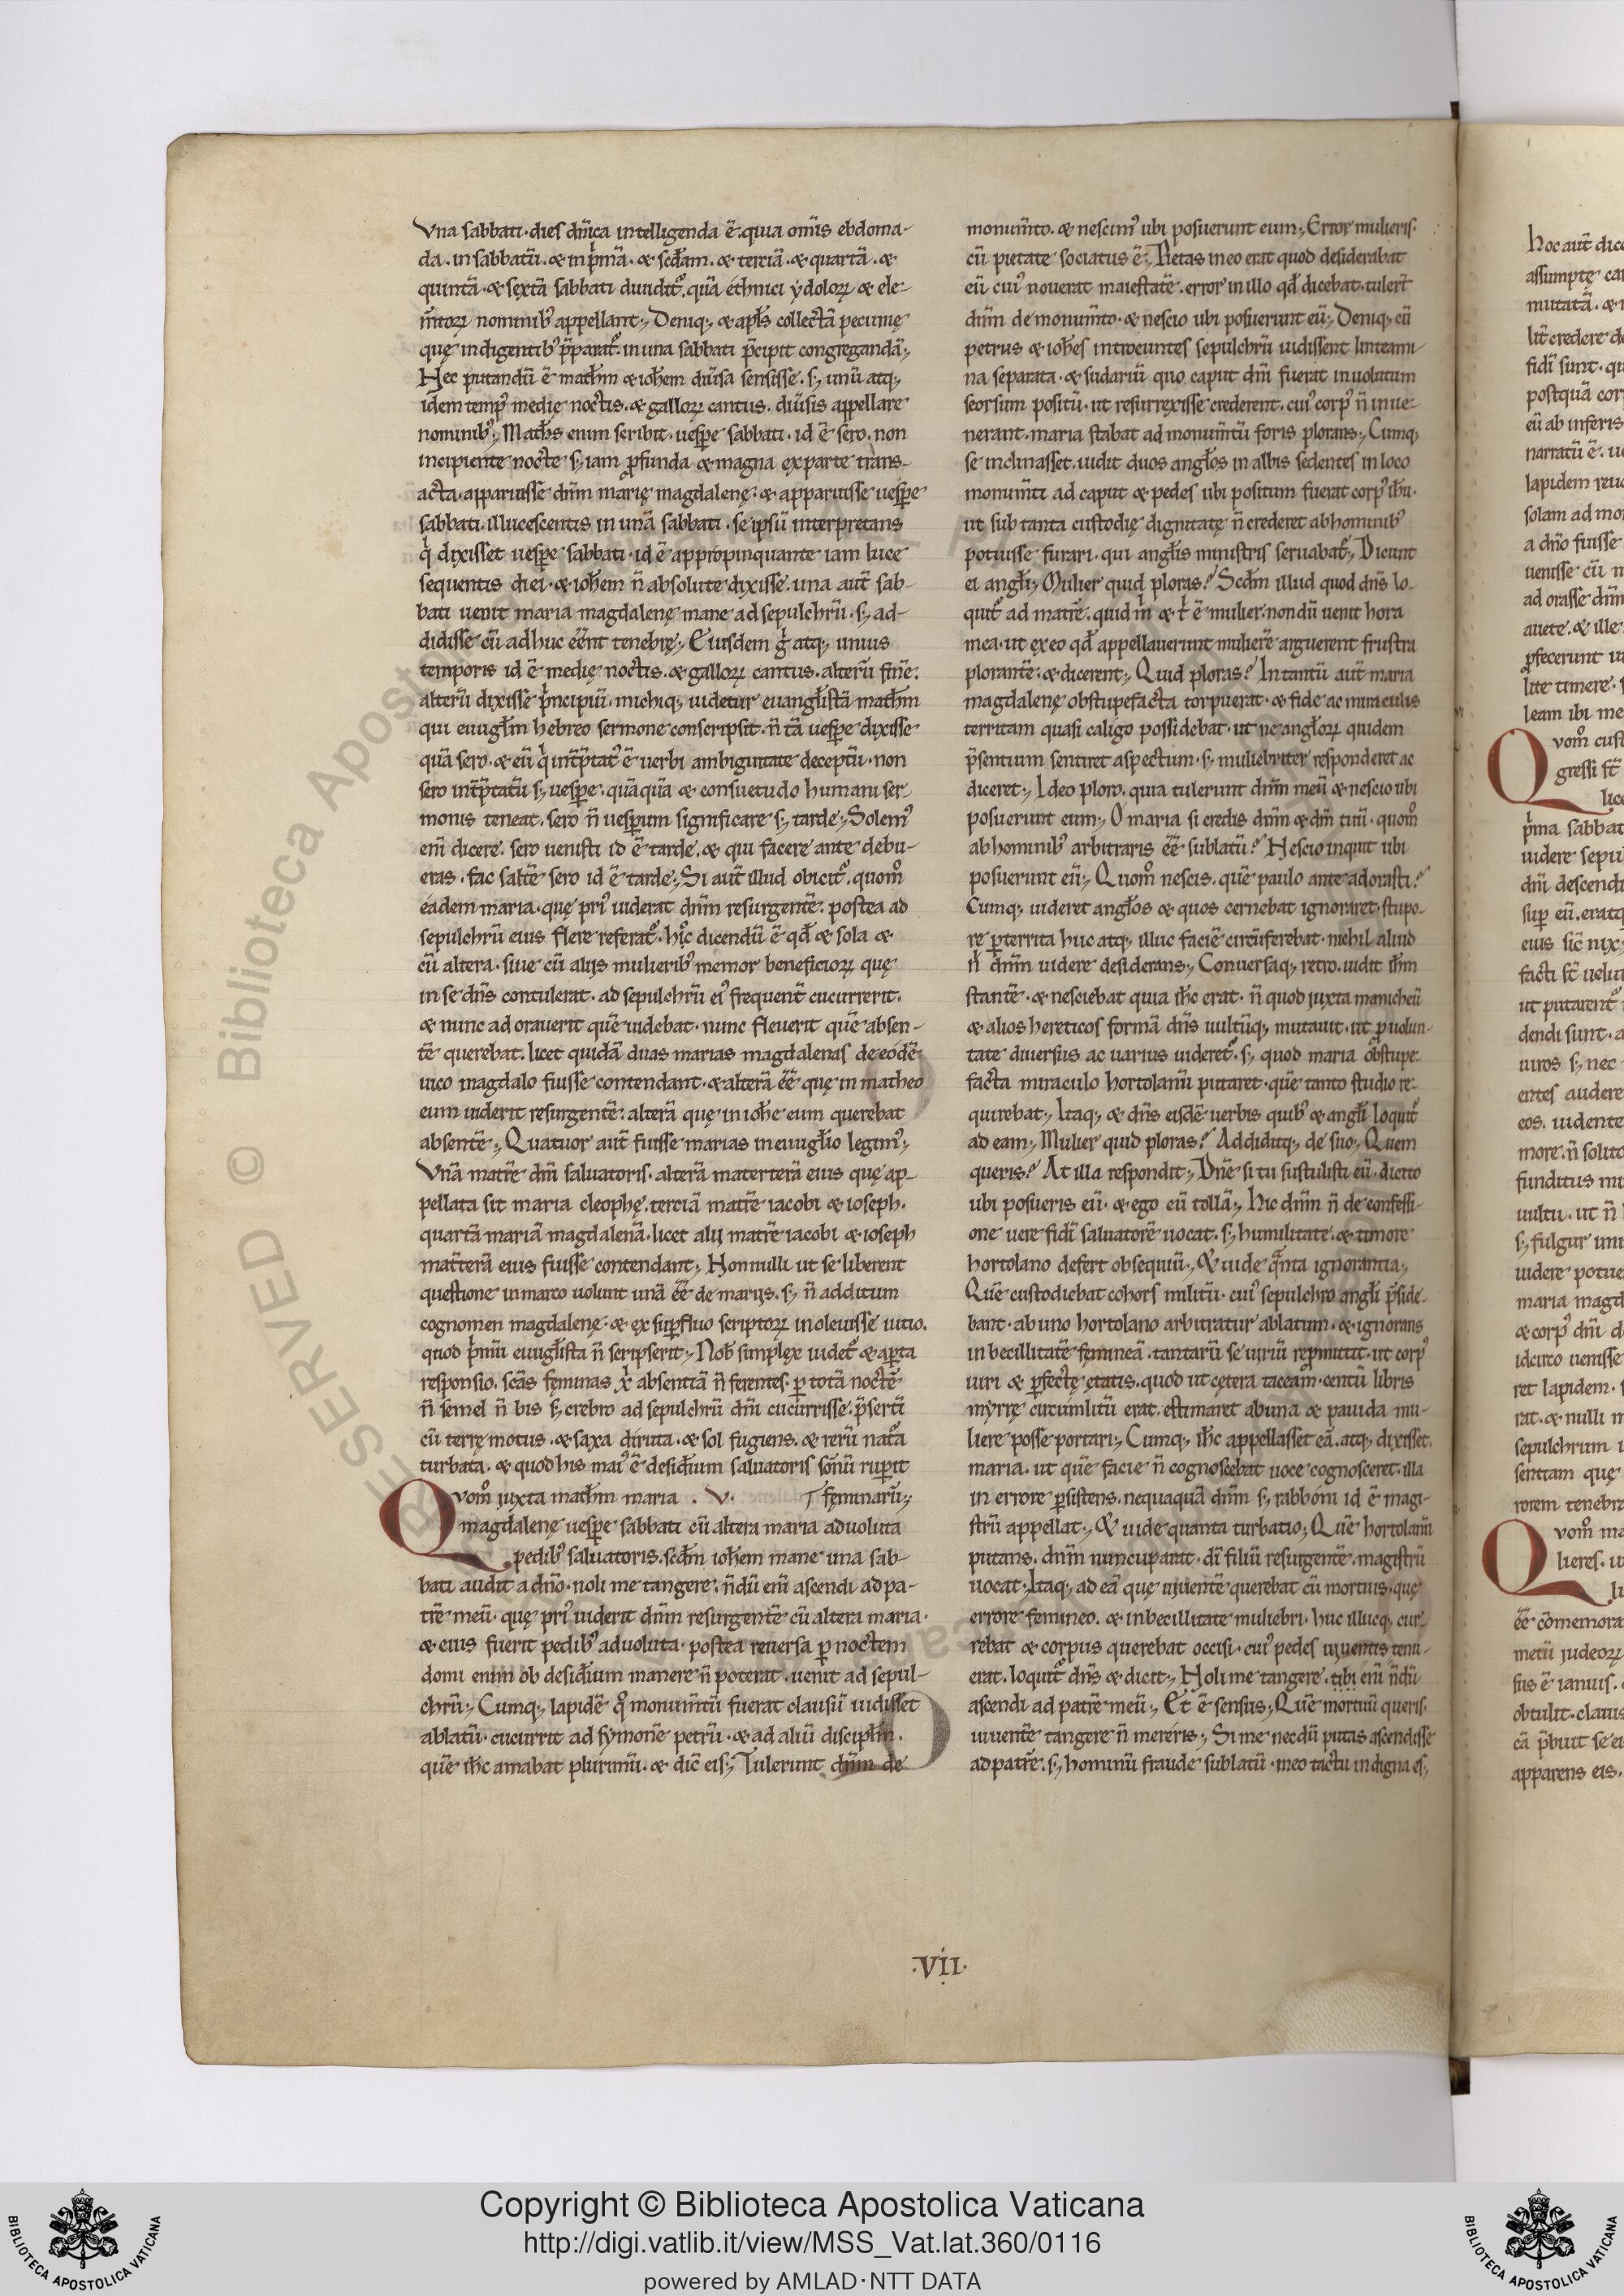 Vna sabbati · dies dn̄ica intelligenda ē · quia om̄is ebdoma-
da · in sabbatū · & in pͥmā · & scd̄am · & terciā · & quartā · &
quintā · & sextā sabbati diuidit᷒ · quā éthnici ydoloꝝ & ele-
m̄toꝝ nominibꝰ appellant ;, Deniq;, & apl̄s collectā pecunię
quę indigentibꝰ p̄parat᷒ · in una sabbati p̄cipit congregandā ;,
Hec putandū ē math̄m & ioh̄em diuͥsa sensisse · s;, unū atq;,
idē tempꝰ medię noctis · & galloꝝ cantus · diuͥsis appellare
nominibꝰ ;, Math̄s enim scribit · uesꝑe sabbati · id ē sero · non
incipiente nocte s;, iam ꝓfunda & magna ex parte trans-
acta · apparuisse dn̄m marię magdalenę · & apparuisse uesꝑe
sabbati · illucescentis in unā sabbati · se ipsū interpretans
qͥ dixisset uesꝑe sabbati · id ē appropinquante iam luce
sequentis diei · & ioh̄em n̄ absolute dixisse · una aut̄ sab-
bati uenit maria magdalenę mane ad sepulchrū · s;, ad-
didisse cū adhuc eēnt tenebrę ;, Eiusdem gͥ atq;, unius
temporis id ē medię noctis · & galloꝝ cantus · alterū finē ·
alterū dixisse pͥncipiū · michiq;, uidetur euangl̄istā math̄m
qui euugl̄m hebreo sermone conscripsit · n̄ tā uesꝑe dixisse
quā sero · & eū qͥ int̄p̄tatꝰ ē uerbi ambiguitate deceptū · non
sero int̄p̄tatū s;, uesꝑe · quāquā & consuetudo humani ser-
monis teneat · sero n̄ uesꝑum significare s;, tarde ;, Solemꝰ
eni̅ dicere · sero uenisti id ē tarde · & qui facere ante debu-
eras · fac saltē sero id ē tarde ;, Si aut̄ illud obicit᷒ · quom̊
éadem maria · quę priꝰ uiderat dn̄m resurgentē · postea ad
sepulchrū eius flere referat᷒ · hͦc dicendū ē qd̄ & sola &
cū altera · siue cū alijs mulieribꝰ memor beneficioꝝ quę
in se dn̄s contulerat · ad sepulchrū eiꝰ frequent̄ cucurrerit ·
& nunc adorauerit quē uidebat · nunc fleuerit quē absen-
tē querebat · licet quidā duas marias magdalenas de eódē
uico magdalo fuisse contendant · & alterā eē̄ quę in matheo
eum uiderit resurgentē · alterā quę in ioh̄e eum querebat
absentē ;, Quatuor aut̄ fuisse marias in euugl̄io legimꝰ ;,
Vnā matrē dn̄i saluatoris · alterā materterā eius quę ap-
pellata sit maria cleophę · terciā matrē iacobi & ioseph ·
quartā mariā magdalenā · licet alij matrē iacobi & ioseph
mat̄terā eius fuisse contendant ;, Nonnulli ut se liberent
questione in marco uolunt unā eē̄ de marijs · s;, n̄ additum
cognomen magdalenę · & ex suꝑfluo scriptoꝝ inoleuisse uitio ·
quod pͥmū euugl̄ista n̄ scripserit ;, Nob̄ simplex uidet᷒ & aꝑta
responsio · sc̄as feminas xͥ absentiā n̄ ferentes · ꝑ totā noctē
n̄ semel n̄ bis s;, crebro ad sepulchrū dn̄i cucurrisse · p̄sertī
cū terrę motus · & saxa diruta · & sol fugiens · & rerū natᷓa
turbata · & quod his maiꝰ ē desid̄ium saluatoris sōnū ruꝑit
Qvom̊ juxta math̄m maria · V · feminarū ;,
magdalenę uesꝑe sabbati cū altera maria aduoluta
pedibꝰ saluatoris · scd̄m ioh̄em mane una sab-
bati audit a dn̄o · noli me tangere · n̄dū eni̅ ascendi ad pa-
trē meū · quę priꝰ uiderit dn̄m resurgentē cū altera maria ·
& eius fuerit pedibꝰ aduoluta · postea reuersa ꝑ noctem
domi enim ob desid̄ium manere n̄ poterat · uenit ad sepul-
chrū ;, Cumq;, lapidē q̊ monum̄tū fuerat clausū uidisset
ablatū · cucurrit ad symonē petrū · & ad aliū discipl̄m ·
quē ih̄c amabat plurimū · & dic̄ eis ;, Tulerunt dn̄m de
monum̄to · & nescimꝰ ubi posuerunt eum ;, Error mulieris ·
cū pietate sociatus ē ;, Pietas in eo erat quod desiderabat
eū cuiꝰ nouerat maiestatē · error in illo qd̄ dicebat · tulert̄
dn̄m de monum̄to · & nescio ubi posuerunt eū ;, Deniq;, cū
petrus & ioh̄es introeuntes sepulchrū uidissent linteami-
na separata · & sudariū quo caput dn̄i fuerat inuolutum
seorsum positū · ut resurrexisse crederent · cuiꝰ corpꝰ n̄ inue-
nerant · maria stabat ad monum̄tū foris plorans ;, Cumq;,
se inclinasset · uidit duos angl̄os in albis sedentes in loco
monum̄ti ad caput & pedes ubi positum fuerat corpꝰ ih̄u ·
ut sub tanta custodię dignitatę n̄ crederet ab hominibꝰ
potuisse furari · qui angl̄is ministris seruabat᷒ ;, Dicunt
ei angl̄i ;, Mulier quid ploras? Scd̄m illud quod dn̄s lo-
quit᷒ ad matrē · quid mͥ & tͥ ē mulier · nondū uenit hora
mea · ut ex eo qd̄ appellauerunt mulierē arguerent frustra
plorantē · & dicerent ;, Quid ploras? In tantū aut̄ maria
magdalenę obstupefacta torpuerat · & fide ac miraculis
territam quasi caligo possidebat · ut ne angl̄oꝝ quidem
p̄sentium sentiret aspectum · s;, muliebriter responderet ac
diceret ;, Ideo ploro · quia tulerunt dn̄m meū & nescio ubi
posuerunt eum ;, O maria si credis dn̄m & dm̄ tuū · quom̊
ab hominibꝰ arbitraris eē̄ sublatū? Nescio inquit ubi
posuerunt eū ;, Quom̊ nescis · quē paulo ante adorasti?
Cumq;, uideret angl̄os & quos cernebat ignoraret · stupo-
re ꝑterrita huc atq;, illuc faciē circūferebat · nichil aliud
nͥ dn̄m uidere desiderans ;, Conuersaq;, retro · uidit ih̄m
stantē · & nesciebat quia ih̄c erat · n̄ quod juxta manicheū
& alios hereticos formā dn̄s uultūq;, mutauit · ut ꝓ uolun-
tate diuersus ac uarius uideret᷒ · s;, quod maria obstupe-
facta miraculo hortolanū putaret · quē tanto studio re-
quirebat ;, Itaq;, & dn̄s eisdē uerbis quibꝰ & angl̄i loquit᷒
ad eam ;, Mulier quid ploras? Addiditq;, de suo ;, Quem
queris? At illa respondit ;, Dn̄e si tu sustulisti eū · dicito
ubi posueris eū · & ego eū tollā ;, Hic dn̄m n̄ de confessi-
one uere fidi̅ saluatorē uocat · s;, humilitate · & timore
hortolano defert obsequiū ;, Et uide qᷓnta ignorantia ;,
Quē custodiebat cohors militū · cuiꝰ sepulchro angl̄i p̄side-
bant · ab uno hortolano arbitratur ablatum · & ignorans
inbecillitatē femineā · tantarū se uiriū repͦmittit · ut corpꝰ
uiri & ꝑfectę ętatis · quod ut cętera taceam · centū libris
myrrę circūmlitū erat · estimaret ab una & pauida mu-
liere posse portari ;, Cumq;, ih̄c appellasset eā · atq;, dixisset ·
maria · ut quē facie n̄ cognoscebat uoce cognosceret · illa
in errore ꝑsistens · nequaquā dn̄m s;, rabboni id ē magi-
strū appellat ;, Et uide quanta turbatio ;, Quē hortolanū
putans · dn̄m nuncuparat · di̅ filiū resurgentē · magistrū
uocat · Itaq;, ad eā quę uiuentē querebat cū mortuis · quę
errore femineo · & inbecillitate muliebri · huc illucq;, cur-
rebat & corpus querebat occisi · cuiꝰ pedes uiuentis tenu-
erat · loquit᷒ dn̄s & dicit ;, Noli me tangere · tibi eni̅ n̄dū
ascendi ad patrē meū ;, Et ē sensus ;, Quē mortuū queris ·
uiuentē tangere n̄ mereris ;, Si me necdū putas ascendisse
ad patrē · s;, hominū fraude sublatū · meo tactu indigna es ;,
·VII·
Copyright © Biblioteca Apostolica Vaticana
http://digi.vatlib.it/view/MSS_Vat.lat.360/0116
powered by AMLAD·NTT DATA
BIBLIOTECA APOSTOLICA VATICANA
BIBLIOTECA APOSTOLICA VATICANA